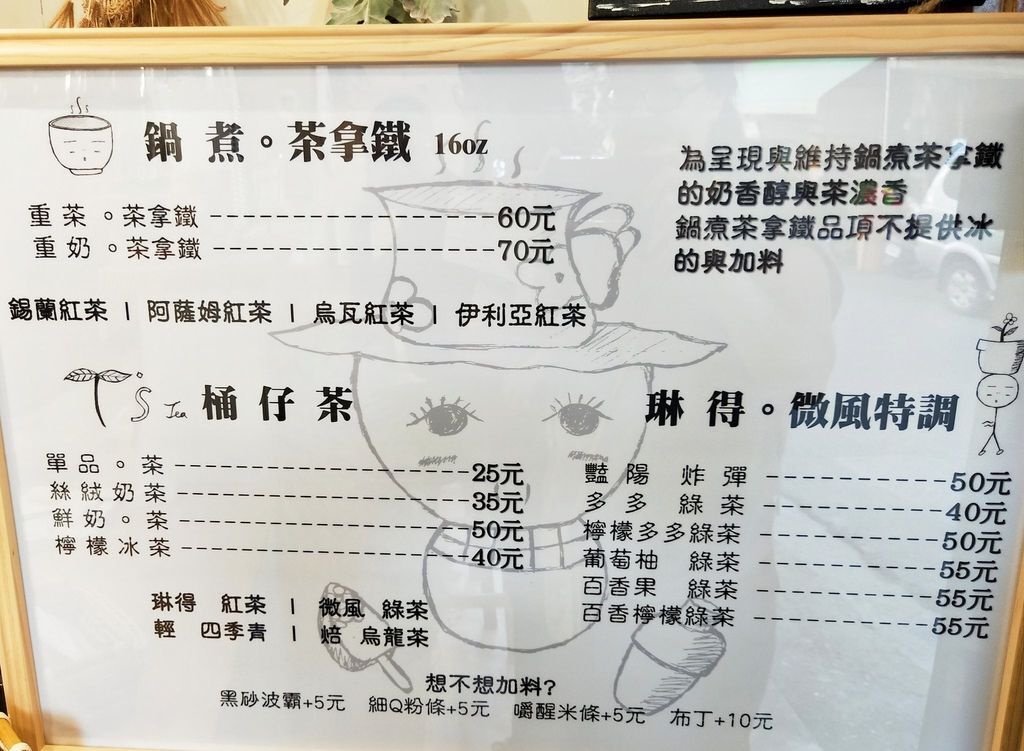 鍋煮。茶拿鐵 16oz
重茶。茶拿鐵 60元
重奶。茶拿鐵 70元
錫蘭紅茶 | 阿薩姆紅茶 | 烏瓦紅茶 | 伊利亞紅茶
為呈現與維持鍋煮茶拿鐵
的奶香醇與茶濃香
鍋煮茶拿鐵品項不提供冰
的與加料
Tea 桶仔茶
單品。茶 25元
絲絨奶茶 35元
鮮奶。茶 50元
檸檬冰茶 40元
琳得 紅茶 | 微風 綠茶
輕 四季青 | 焙 烏龍茶
琳得。微風特調
豔陽 炸彈 50元
多多 綠茶 40元
檸檬多多綠茶 50元
葡萄柚 綠茶 55元
百香果 綠茶 55元
百香檸檬綠茶 55元
想不想加料?
黑砂波霸+5元 細Q粉條+5元 嚼醒米條+5元 布丁+10元